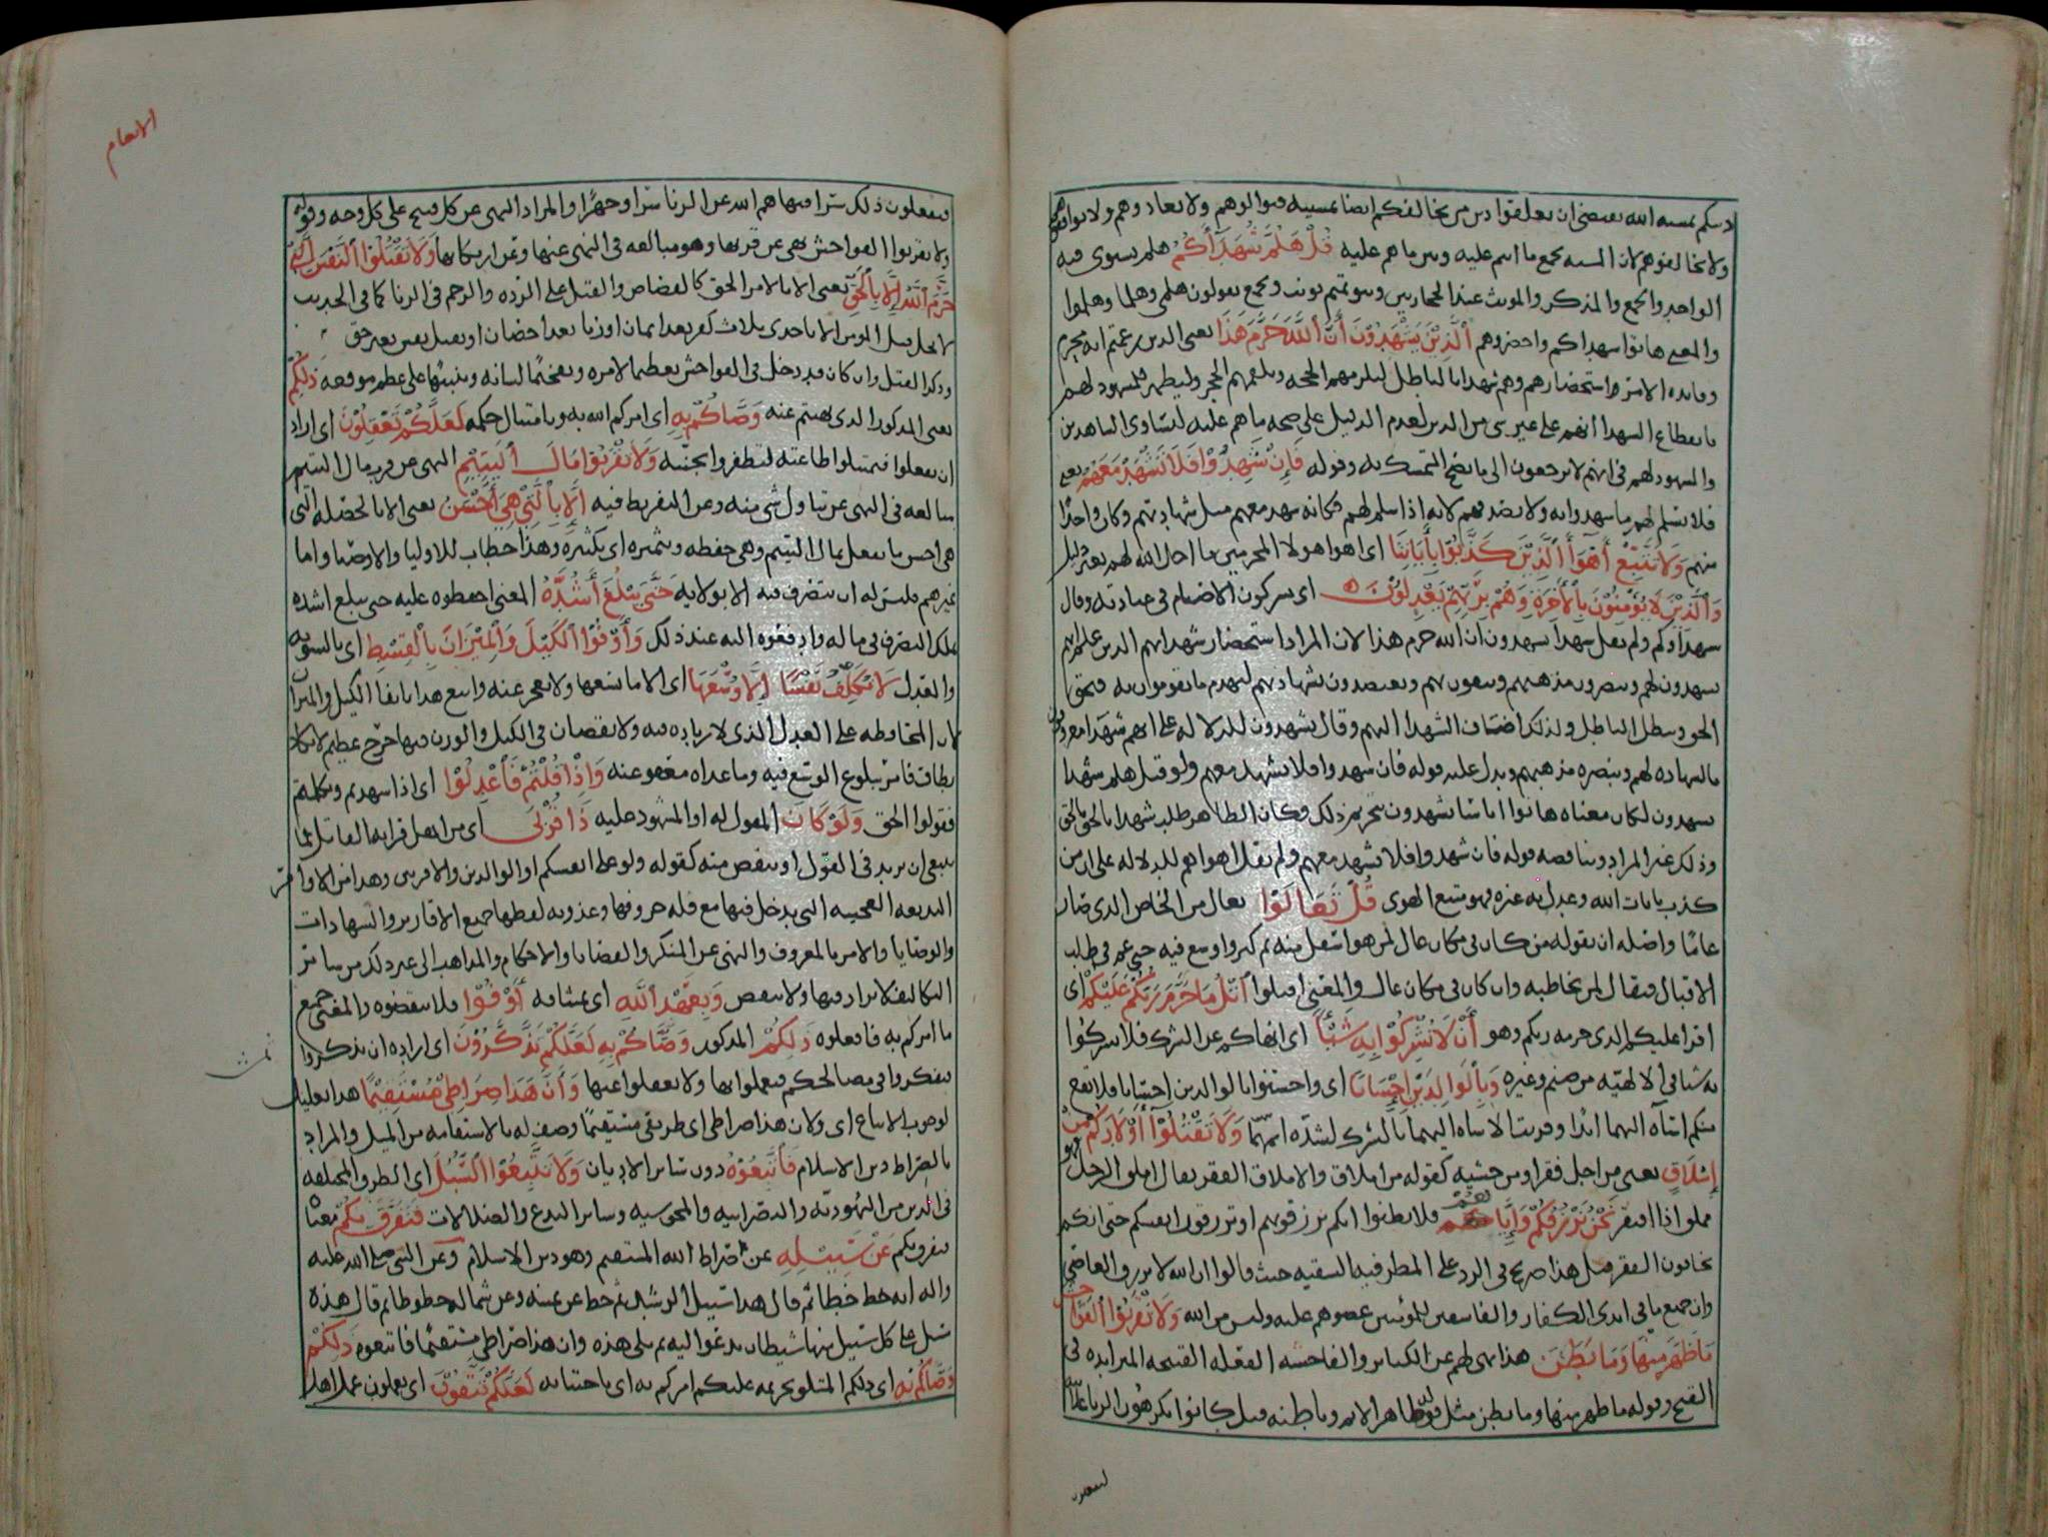 دينكم بمشية الله يقتضي ان يعلقوا دين من يخالفكم ايضا بمشيته فتوالوهم ولا تعادوهم وتوافقوهم
ولا تخالفوهم لان المشية تجمع ما انتم عليه وبين ما هم عليه قُلْ هَلُمَّ شُهَدَآءَكُمُ هلم يستوى فيه
الواحد والجمع والمذكر والمونث عند الحجازيين وبنو تميم تونث وتجمع يقولون هلمى وهلما وهلموا
والمعنى هاتوا شهداكم واحضروهم ٱلَّذِيْنَ يَشْهَدُوْنَ أَنَّ ٱللَّهَ حَرَّمَ هَذَا يعنى الذين زعمتم انه محرم
وفائدة الامر واستحضارهم وهم شهدا بالباطل ليلزمهم الحجه ويلقمهم الحجر وليظهر للمشهود لهم
بانقطاع الشهدا انهم على غير شى من الدين لعدم الدليل على صحه ما هم عليه لتساوى الشاهدين
والمشهود لهم فى انهم لا يرجعون الى ما يصح التمسك به وقوله فَإِنْ شَهِدُوْا فَلَا تَشْهَدْ مَعَهُمْ يعنى
فلا تسلم لهم ما شهدوا به ولا تصدقهم لانه اذا سلم لهم فكانه شهد معهم مثل شهادتهم وكان واحدًا
منهم وَلَا تَتَّبِعْ أَهْوَآءَ ٱلَّذِيْنَ كَذَّبُوْا بِأَيَاتِنَا اى اهوا هولا المحرمين ما احل الله لهم بغير دليل
وَٱلَّذِيْنَ لَا يُؤْمِنُوْنَ بِٱلْأَخِرَةِ وَهُمْ بِرَبِّهِمْ يَعْدِلُوْنَ اى يشركون الاصنام فى عبادته وقال
شهداوكم ولم يقل شهدا يشهدون ان الله حرم هذا لان المراد استحضار شهدايهم الذين علم انهم
يشهدون لهم وينصرون مذهبهم ويثقون بهم ويعتضدون بشهادتهم ليهدم ما يقومون به فيحق
الحق ويبطل الباطل ولذلك اضاف الشهدا اليهم وقال يشهدون للدلاله على انهم شهدا معروفون
بالشهاده لهم وبنصره مذهبهم ويدل عليه قوله فان شهدوا فلا تشهد معهم ولو قيل هلم شهدا
يشهدون لكان معناه هاتوا اناسًا يشهدون بتحريم ذلك فكان الظاهر طلب شهدا بالحق بالحق
وذلك غير المراد ويناقضه قوله فان شهدوا فلا تشهد معهم ولم يقل اهواهم للدلاله على ان من
كذب بايات الله وعدل به غيره فهو متبع الهوى قُلْ تَعَالَوْا تعال من الخاص الذى صار
عامًا واصله ان يقوله من كان فى مكان عال لمن هو اسفل منه ثم كثر واتسع فيه حتى عم فى طلب
الاقبال فيقال لمن يخاطبه وان كان فى مكان عال والمعنى اقبلوا أَتْلُ مَا حَرَّمَ رَبُّكُمْ عَلَيْكُمْ اى
اقرا عليكم الذى حرمه ربكم وهو أَنْ لَا تُشْرِكُوْا بِهِ شَيْئًا اى انهاكم عن الشرك فلا تشركوا
به شيا فى الالهيه من صنم وغيره وَبِٱلْوَالِدَيْنِ إِحْسَانًا اى واحسنوا بالوالدين احسانا فلا تقع
منكم اساه اليهما ابدًا وقرنت الاساه اليهما بالشرك لشدة اثمها وَلَا تَقْتُلُوْآ أَوْلَادَكُمْ مِنْ
إِمْلَاقٍ يعنى من اجل فقر او من خشيه كقوله من املاق والاملاق الفقر يقال املق الرجل فهو
مملق اذا افتقر نَحْنُ نَرْزُقُكُمْ وَإِيَّاهُمْ فلا تظنوا انكم ترزقونهم او ترزقون انفسكم حتى انكم
تخافون الفقر قيل هذا صريح فى الرد على المطرفيه الشقيه حيث قالوا ان الله لا يرزق العاصى
وان جميع ما فى ايدى الكفار والفاسقين للمؤمنين غصبوهم عليه وليس من الله وَلَا تَقْرَبُوْا ٱلْفَوَاحِشَ
مَا ظَهَرَ مِنْهَا وَمَا بَطَنَ هذا نهى لهم عن الكباير والفاحشه الفعله القبيحه المتزايده فى
القبح وقوله ما ظهر منها وما بطن مثل قوله ظاهر الاثم وباطنه قيل كانوا يكرهون الزنا علانية
الانعام
فيفعلون ذلك سترا فنهاهم الله عن الزنا سرًا وجهرًا والمراد النهى عن كل قبيح على كل وجه وقوله
ولا تقربوا الفواحش نهى عن قربها وهو مبالغه فى النهى عنها وعن ارتكابها وَلَا تَقْتُلُوْا ٱلنَّفْسَ ٱلَّتِيْ
حَرَّمَ ٱللَّهُ إِلَّا بِٱلْحَقِّ يعنى الا بالامر الحق كالقصاص والقتل على الرده والرجم فى الزنا كما فى الحديث
لا يحل قتل المومن الا باحدى ثلاث كفر بعد ايمان او زنا بعد احصان او يقتل نفس بغير حق
وذكر القتل وان كان قد دخل فى الفواحش تعظيما لامره وتفخيمًا لشانه وتنبيهًا على عظم موقعه ذَلِكُمْ
يعنى المذكور الذى نهيتم عنه وَصَّاكُمْ بِهِ اى امركم الله به وبامتثال حكمه لَعَلَّكُمْ تَعْقِلُوْنَ اى اراد
ان تعقلوا فتمتثلوا طاعته لتظفروا بجنته وَلَا تَقْرَبُوْا مَالَ ٱلْيَتِيْمِ النهى عن قرب مال اليتيم
مبالغه فى النهى عن تناول شى منه وعن التفريط فيه إِلَّا بِٱلَّتِيْ هِيَ أَحْسَنُ يعنى الا بالخصله التى
هى احسن ما يفعل بمال اليتيم وهى حفظه وتثميره اى تكثيره وهذا خطاب للاوليا والاوصيا واما
غيرهم فليس له ان يتصرف فيه الا بولايه حَتَّى يَبْلُغَ أَشُدَّهُ المعنى احفظوه عليه حتى يبلغ اشده
ملك التصرف فى ماله وادفعوه اليه عند ذلك وَأَوْفُوْا ٱلْكَيْلَ وَٱلْمِيْزَانَ بِٱلْقِسْطِ اى بالسويه
والعدل لَا نُكَلِّفُ نَفْسًا إِلَّا وُسْعَهَا اى الا ما يسعها ولا تعجز عنه واتبع هذا بايفا الكيل والميزان
لان المحافظه على العدل الذى لا زياده فيه ولا نقصان فى الكيل والوزن فيها حرج عظيم لا يكاد
يطاق فامر ببلوغ الوسع فيه وما عداه معفو عنه وَإِذَا قُلْتُمْ فَٱعْدِلُوْا اى اذا شهدتم وتكلمتم
فقولوا الحق وَلَوْ كَانَ المقول له او المشهود عليه ذَا قُرْبَى اى من اهل قرابه القائل فما
ينبغى ان يزيد فى القول او ينقص منه كقوله ولو على انفسكم او الوالدين والاقربين وهذا من الاوامر
البديعه العجيبه التى يدخل فيها مع قله حروفها وعذوبه لفظها جميع الاقارير والشهادات
والوصايا والامر بالمعروف والنهى عن المنكر والقضايا والاحكام والمذاهب الى غير ذلك من ساير
التكاليف لا يزاد فيها ولا ينقص وَبِعَهْدِ ٱللَّهِ اى بميثاقه أَوْفُوْا فلا تنقضوه والمعنى جميع
ما امركم به فافعلوه ذَلِكُمْ المذكور وَصَّاكُمْ بِهِ لَعَلَّكُمْ تَذَكَّرُوْنَ اى اراده ان تذكروا
تتفكروا فى مصالحكم فتعملوا بها ولا تغفلوا عنها وَأَنَّ هَذَا صِرَاطِيْ مُسْتَقِيْمًا هذا تعليل
لوجوب الاتباع اى ولان هذا صراطى اى طريقى مستقيمًا وصف له بالاستقامه من الميل والمراد
بالصراط دين الاسلام فَٱتَّبِعُوْهُ دون ساير الاديان وَلَا تَتَّبِعُوْا ٱلسُّبُلَ اى الطرق المختلفه
فى الدين من اليهوديه والنصرانيه والمجوسيه وساير البدع والضلالات فَتَفَرَّقَ بِكُمْ معناه
تفرقكم عَنْ سَبِيْلِهِ عن صراط الله المستقيم وهو دين الاسلام وعن النبى صلى الله عليه
واله انه خط خطا ثم قال هذا سبيل الرشد ثم خط عن يمينه وعن شماله خطوطا ثم قال هذه
سبل على كل سبيل منها شيطان يدعوا اليه ثم تلى هذه وان هذا صراطى مستقيمًا فاتبعوه ذَلِكُمْ
وَصَّاكُمْ بِهِ اى ذلكم المتلو تحريمه عليكم امركم به اى باجتنابه لَعَلَّكُمْ تَتَّقُوْنَ اى تعملون عملا اهل